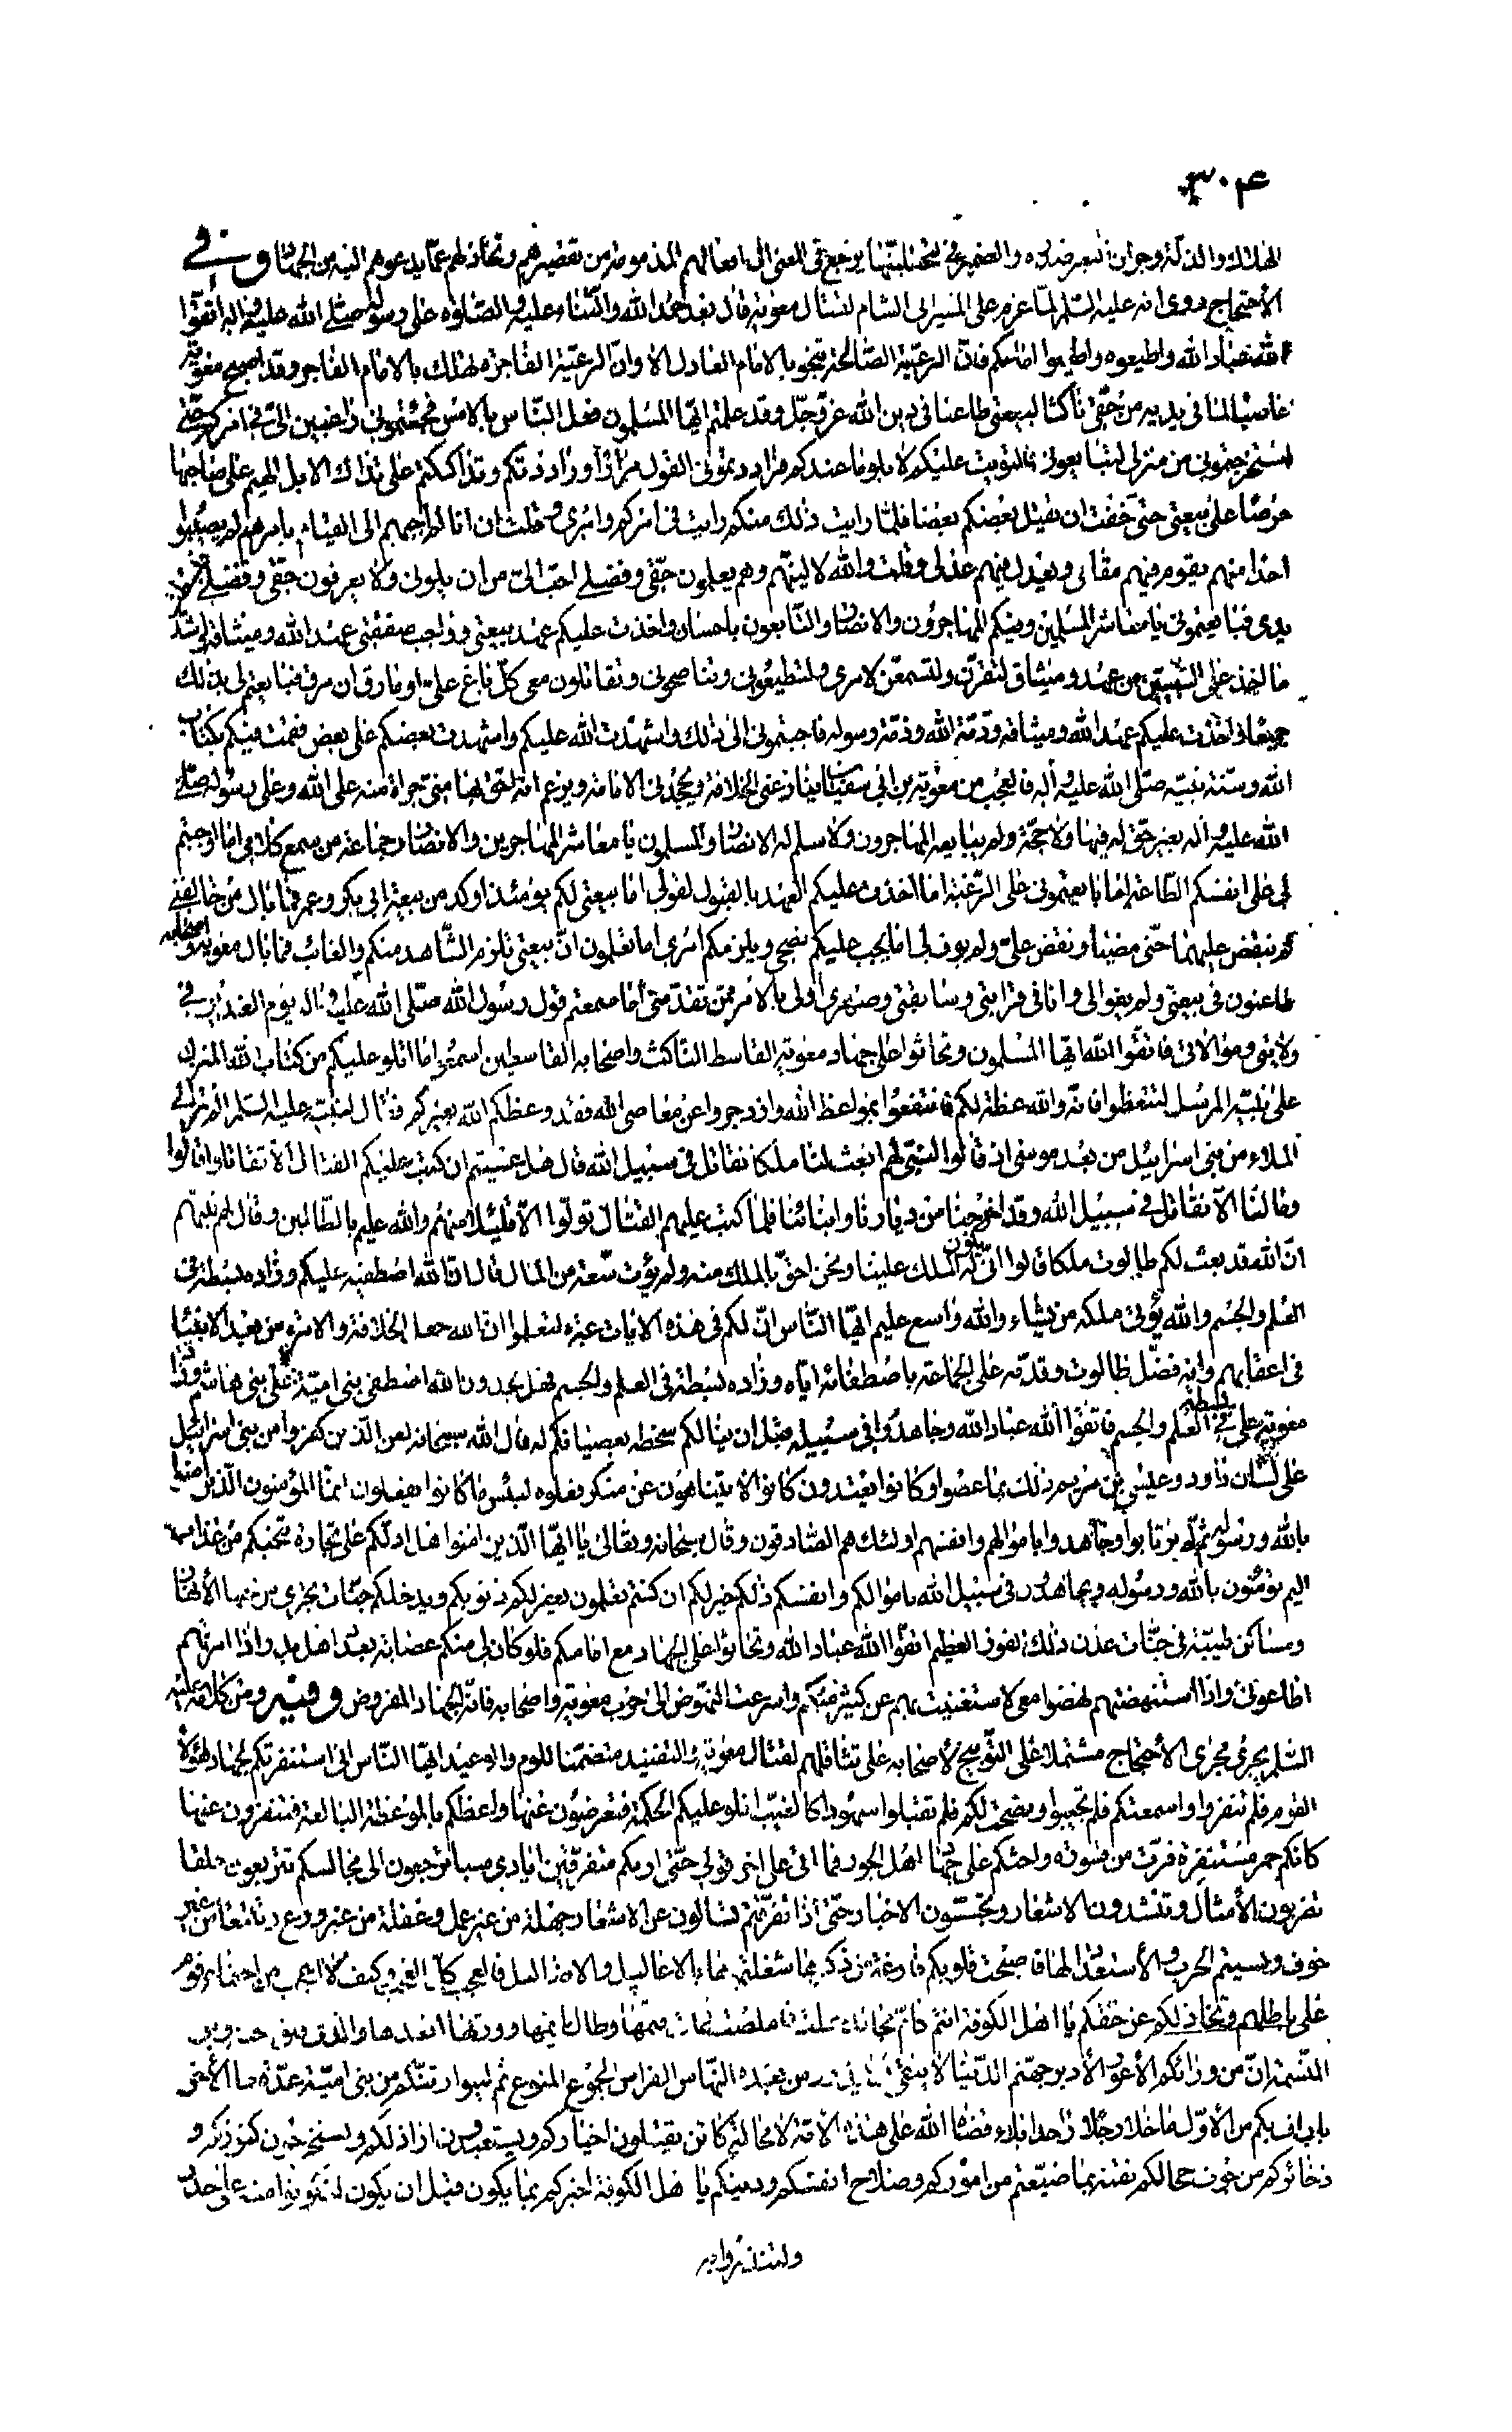 ۳۰۴
الهلاك والذلة وجوازن تعرضه و الضمير فى محنا بليتها يرجع فى المعنى الى افعالهم المذمومة من تقصيرهم وتخاذلهم عما يدعوهم اليه من الجهاد و فى
الأحتجاج روى انه عليه السلم لما عزم على المسير الى الشام لقتال معوية قال بعد حمد الله والثناء عليه والصلوة على رسول الله صلى الله عليه واله اتقوا
الله عباد الله واطيعوه واطيعوا امامكم فان الرعية الصالحة تنجو بالامام العادل الا وان الرعية الفاجرة تهلك بالامام الفاجر وقد اصبح معوية
غاصبا لما فى يديه من حقى ناكثا لبيعتى طاعنا فى دين الله عز وجل وقد علمتم ايها المسلمون ما فعل الناس بالامس فجئتمونى راغبين الى فى امركم حتى
استخرجتمونى من منزلى لتبايعونى فالتويت عليكم لابلو ما عندكم فراددتمونى القول مرارا وراددتكم وتداككتم على تداك الابل الهيم على حياضها
حرصا على بيعتى حتى خفت ان يقتل بعضكم بعضا فلما رايت ذلك منكم رويت فى امركم وامرى وقلت ان انا لم اجبهم الى القيام بامرهم لم يصيبوا
احدا منهم يقوم فيهم مقامى ويعدل فيهم عدلى وقلت والله لالينهم وهم يعلمون حقى وفضلى احب الى من ان يلونى ولا يعرفون حقى وفضلى فبسطت
يدى فبايعتمونى يا معاشر المسلمين وفيكم المهاجرون والانصار والتابعون باحسان واخذت عليكم عهد بيعتى وواجب صفقتى عهد الله وميثاقه اشد
ما اخذ على النبيين من عهد وميثاق لتقرن ولتسمعن لامرى ولتطيعونى وتناصحونى وتقاتلون معى كل باغ على او مارق ان مرق فبايعتم لى بذلك
جميعا فاخذت عليكم عهد الله وميثاقه وذمة الله وذمة رسوله فاجبتمونى الى ذلك واشهدت الله عليكم واشهدت بعضكم على بعض فقمت فيكم بكتاب
الله وسنة نبيه صلى الله عليه واله فالعجب من معوية بن ابى سفيان ينازعنى الخلافة ويجحدنى الامامة ويزعم انه احق بها منى جراة منه على الله وعلى رسوله صلى
الله عليه واله بغير حق له فيها ولا حجة ولم يبايعه المهاجرون ولا سلم له الانصار والمسلمون يا معاشر المهاجرين والانصار وجماعة من سمع كلامى اما اوجبتم
لى على انفسكم الطاعة اما بايعتمونى على الرغبة اما اخذت عليكم العهد بالقبول لقولى اما بيعتى لكم يومئذ اوكد من بيعة ابى بكر وعمر فما بال من خالفنى
لم ينقض عليهما حتى مضيا ونقض على ولم يوف لى اما يجب عليكم نصحى ويلزمكم امرى اما تعلمون ان بيعتى تلزم الشاهد منكم والغائب فما بال معوية واصحابه
طاعنون فى بيعتى ولم يفوا لى وانا فى قرابتى وسابقتى وصهرى اولى بالامر ممن تقدمنى اما سمعتم قول رسول الله صلى الله عليه واله يوم الغدير فى
ولايتى وموالاتى فاتقوا الله ايها المسلمون وتحاثوا على جهاد معوية القاسط الناكث واصحابه القاسطين اسمعوا ما اتلو عليكم من كتاب الله المنزل
على نبيه المرسل لتتعظوا فانه والله عظة لكم فانتفعوا بمواعظ الله وازدجروا عن معاصى الله فقد وعظكم الله بغيركم فقال لنبيه عليه السلم الم تر الى
الملاء من بنى اسرائيل من بعد موسى اذ قالوا لنبى لهم ابعث لنا ملكا نقاتل فى سبيل الله قال هل عسيتم ان كتب عليكم القتال الا تقاتلوا قالوا
ومالنا الا نقاتل فى سبيل الله وقد اخرجنا من ديارنا وابنائنا فلما كتب عليهم القتال تولوا الا قليلا منهم والله عليم بالظالمين وقال لهم نبيهم
ان الله قد بعث لكم طالوت ملكا قالوا انى يكون له الملك علينا ونحن احق بالملك منه ولم يؤت سعة من المال قال ان الله اصطفيه عليكم وزاده بسطة فى
العلم والجسم والله يؤتى ملكه من يشاء والله واسع عليم ايها الناس ان لكم فى هذه الايات عبرة لتعلموا ان الله جعل الخلافة والامرة من بعد الانبياء
فى اعقابهم وانه فضل طالوت وقدمه على الجماعة باصطفائه اياه وزاده بسطة فى العلم والجسم فهل يجدون الله اصطفى بنى امية على بنى هاشم وزاد
معوية على بسطة فى العلم والجسم فاتقوا الله عباد الله وجاهدوا فى سبيله قبل ان ينالكم سخطه بعصيانكم له قال الله سبحانه لعن الذين كفروا من بنى اسرائيل
على لسان داود وعيسى بن مريم ذلك بما عصوا وكانوا يعتدون كانوا لا يتناهون عن منكر فعلوه لبئس ما كانوا يفعلون انما المؤمنون الذين امنوا
بالله ورسوله ثم لم يرتابوا وجاهدوا باموالهم وانفسهم اولئك هم الصادقون وقال سبحانه وتعالى يا ايها الذين امنوا هل ادلكم على تجارة تنجيكم من عذاب
اليم تؤمنون بالله ورسوله وتجاهدون فى سبيل الله باموالكم وانفسكم ذلكم خير لكم ان كنتم تعلمون يغفر لكم ذنوبكم ويدخلكم جنات تجرى من تحتها الأنهار
ومساكن طيبة فى جنات عدن ذلك الفوز العظيم اتقوا الله عباد الله وتحاثوا على الجهاد مع امامكم فلو كان لى منكم عصابة بعدد اهل بدر اذا امرتهم
اطاعونى واذا استنهضتهم نهضوا معى لاستغنيت بهم عن كثير منكم واسرعت النهوض الى حرب معوية واصحابه فانه الجهاد المفروض وفيه ومن كلامه عليه
السلم يجرى مجرى الأحتجاج مشتملا على التوبيخ لأصحابه على تثاقلهم لقتال معوية والتفنيد متضمنا للوم والوعيد ايها الناس انى استنفرتكم لجهاد هؤلاء
القوم فلم تنفروا واسمعتكم فلم تجيبوا ونصحت لكم فلم تقبلوا شهودا كالغيب اتلو عليكم الحكمة فتعرضون عنها واعظكم بالموعظة البالغة فتنفرون عنها
كانكم حمر مستنفرة فرت من قسورة واحثكم على جهاد اهل الجور فما اتى على اخر قولى حتى اريكم متفرقين ايادى سبا ترجعون الى مجالسكم تتربعون حلقا
تضربون الأمثال وتنشدون الاشعار وتجسسون الاخبار حتى اذا تفرقتم تسالون عن الاشعار جهلة من غير علم وغفلة من غير ورع وتثبطا من غير
خوف ونسيتم الحرب والأستعداد لها فاصبحت قلوبكم فارغة من ذكرها شغلتموها بالاعاليل والاضاليل فالعجب كل العجب وكيف لا اعجب من اجتماع قوم
على باطلهم وتخاذلكم عن حقكم يا اهل الكوفة انتم كام مجالد حملت فاملصت فمات قيمها وطال ايمها وورثها ابعدها والذى فلق الحبة وبرء
النسمة ان من ورائكم الأعور الأدبر جهنم الدنيا لا يبقى ولا يذر ومن بعده النهاس الفراس الجموع المنوع ثم ليتوارثنكم من بنى امية عدة ما الأخر
بارأف بكم من الأول ما خلا رجلا واحدا بلاء قضاه الله على هذه الأمة لا محالة كائن يقتلون اخياركم ويستعبدون اراذلكم ويستخرجون كنوزكم و
ذخائركم من جوف حجالكم نقمة بما ضيعتم من اموركم وصلاح انفسكم ودينكم يا اهل الكوفة اخبركم بما يكون قبل ان يكون لتكونوا منه على حذر
ولتنذروا به